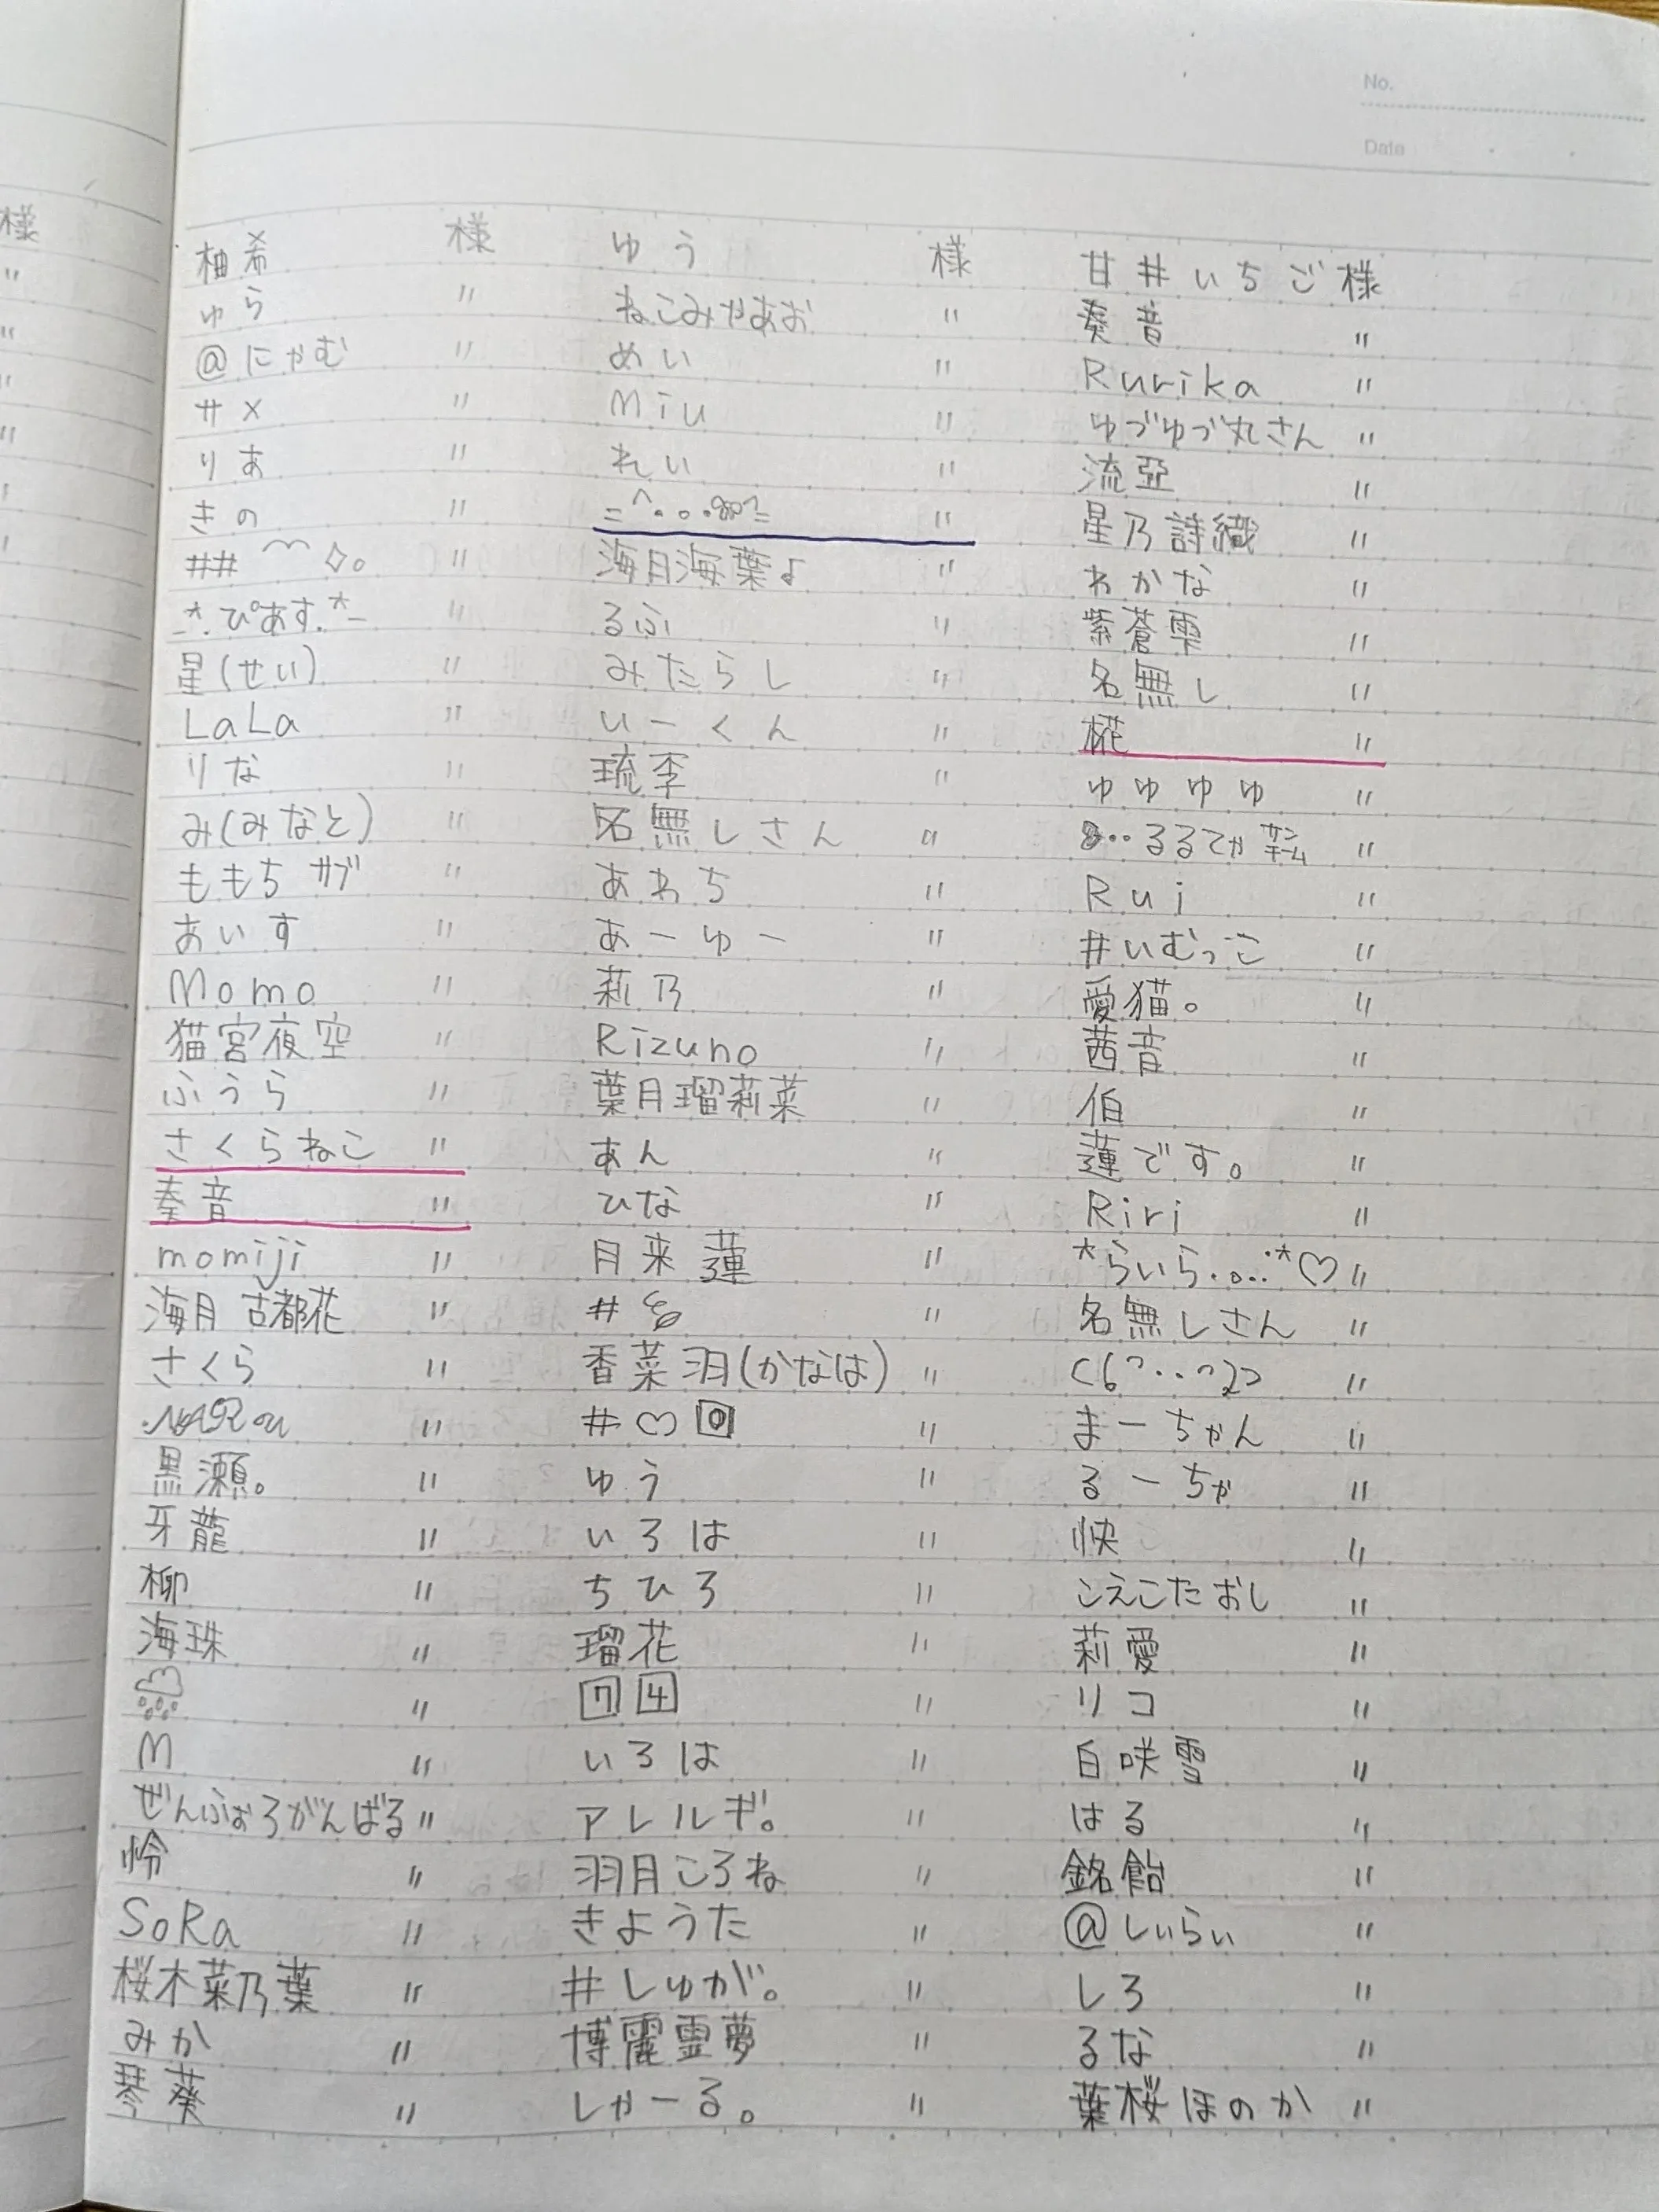 No.
Date
様
〃
〃
〃
〃
柚希 様
ゅら 〃
@にゃむ 〃
サメ 〃
りあ 〃
きの 〃
## 〃
_*.ぴあす.*_ 〃
星(せい) 〃
LaLa 〃
りな 〃
み(みなと) 〃
ももち サブ 〃
あいす 〃
Momo 〃
猫宮夜空 〃
ふうら 〃
さくらねこ 〃
奏音 〃
momiji 〃
海月 古都花 〃
さくら 〃
〃
黒瀬。 〃
牙龍 〃
柳 〃
海珠 〃
〃
M 〃
ぜんふぉろがんばる 〃
怜 〃
SoRa 〃
桜木菜乃葉 〃
みか 〃
琴葵 〃
ゆう 様
ねこみやあお 〃
めい 〃
Miu 〃
れい 〃
〃
海月海葉♪ 〃
るふ 〃
みたらし 〃
いーくん 〃
琉李 〃
名無しさん 〃
あわち 〃
あーゆー 〃
莉乃 〃
Rizuno 〃
葉月瑠莉菜 〃
あん 〃
ひな 〃
月来 蓮 〃
# 〃
香菜羽(かなは) 〃
#♡ 〃
ゆう 〃
いろは 〃
ちひろ 〃
瑠花 〃
7 4 〃
いろは 〃
アレルギ。 〃
羽月ころね 〃
きようた 〃
#しゅが。 〃
博麗霊夢 〃
しゃーる。 〃
甘井いちご様
奏音 〃
Rurika 〃
ゆづゆづ丸さん 〃
流亞 〃
星乃詩織 〃
わかな 〃
紫蒼雫 〃
名無し 〃
椛 〃
ゅゅゅゅ 〃
るるてか 〃
Rui 〃
#いむっこ 〃
愛猫。 〃
茜音 〃
伯 〃
蓮です。 〃
Riri 〃
*らいら.o..・*♡ 〃
名無しさん 〃
〃
まーちゃん 〃
るーちゃ 〃
快 〃
こえこたおし 〃
莉愛 〃
リコ 〃
白咲雪 〃
はる 〃
銘飴 〃
@しぃらぃ 〃
しろ 〃
るな 〃
葉桜ほのか 〃